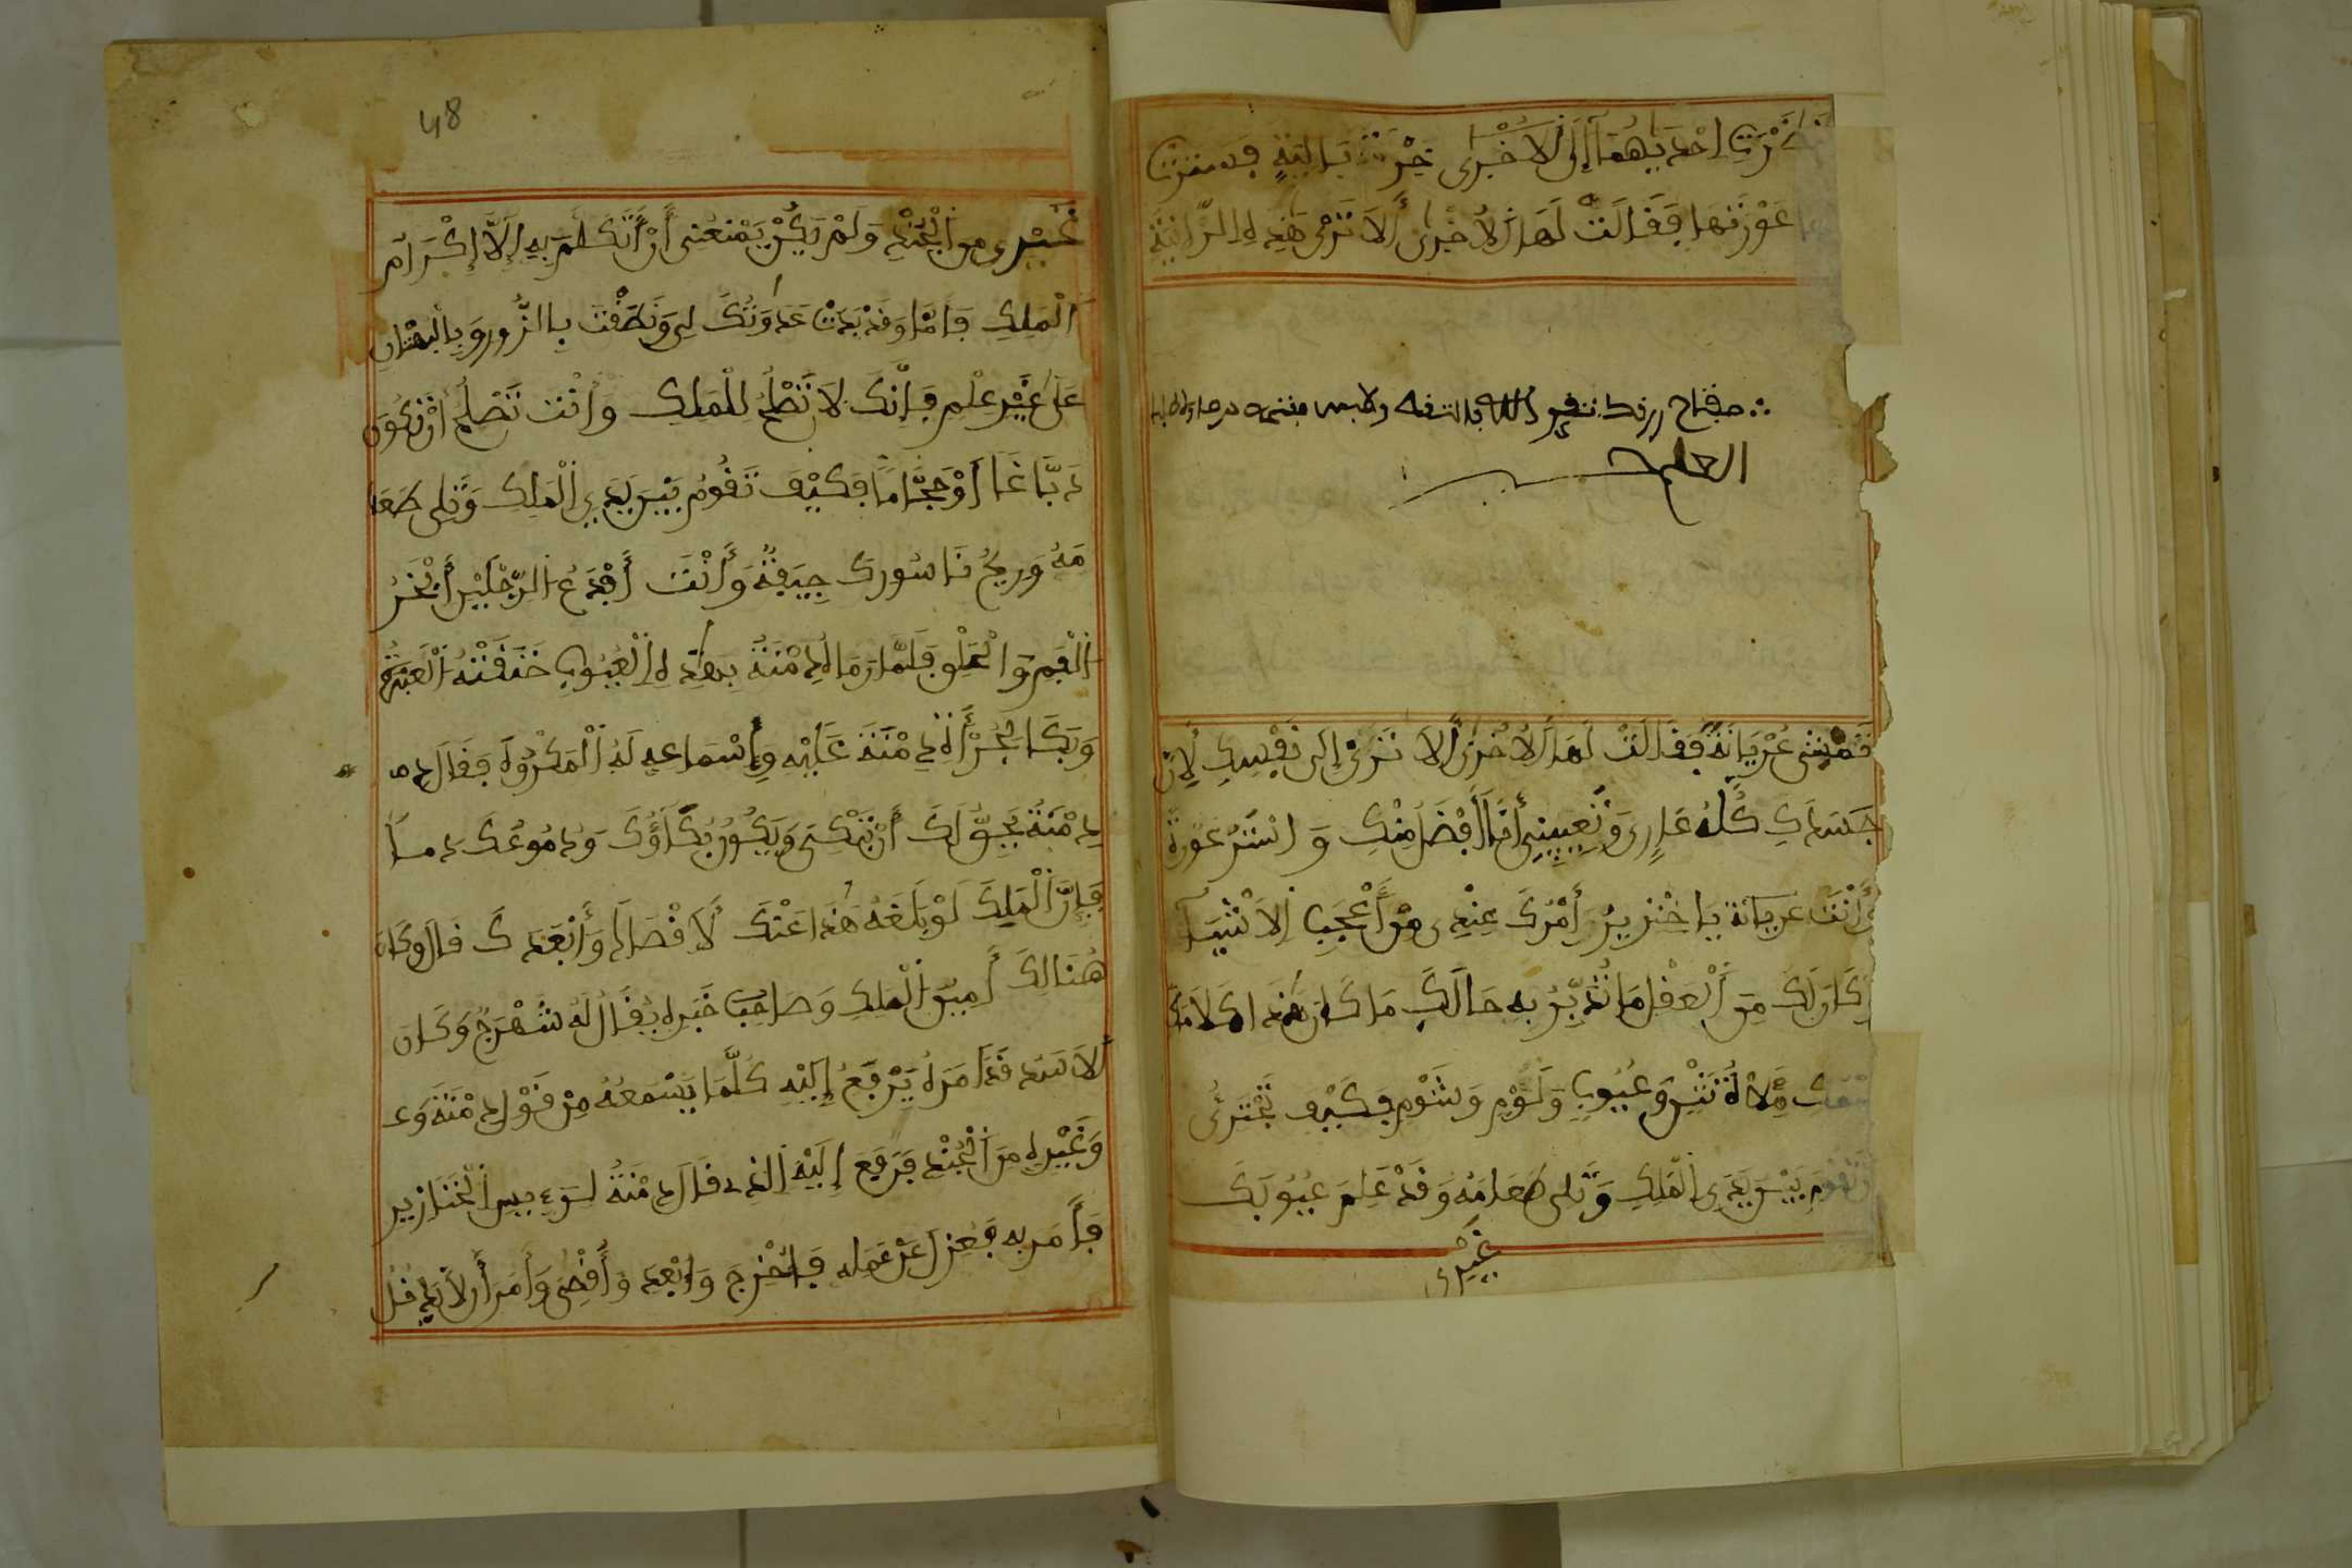 إحديهما إلى الأخرى خرقة بالية فسترت
عورتها فقالت لها الأخرى ألا ترى هذه الزانية
العلم
تمشي عريانة فقالت لها الأخرى ألا ترى إلى نفسك لأن
جسدك كله عاري وتعيبيني أنا أفضل منك واستر عورة
وأنت عريانة يا خنزير أمرك عندي من أعجب الأشياء
كان لك من العقل ما تدبر به حالك ما كان هذا كلامك
وعيوب ولؤم وشوم فكيف تجترئ
وتقوم بين يدي الملك وتلي طعامه وقد علم عيوبك
غيري
48
غيري من الجند ولم يكن يمنعني أن أتكلم به إلا إكرام
الملك فأما وقد بدت عدوتك لي ونطقت بالزور وبالبهتان
على غير علم فإنك لا تصلح للملك وأنت تصلح أن تكون
دباغا أو حجاما فكيف تقوم بين يدي الملك وتلي طعا
مه وريح ناسورك جيفة وأنت أفدع الرجلين أبخر
الفم والحلق فلما رما لدمنة بهذه العيوب خنقته العبرة
وبكا لجرأة دمنة عليه وإسماعه له المكروه فقال
دمنة يحق لك أن تبكي ويكون بكاؤك ودموعك دما
فإن الملك لو بلغه هذا عنك لأقصاك وأبعدك قال وكان
هنالك أمين الملك وصاحب خبره يقال له شهرج وكان
الأسد قد أمره يرفع إليه كلما يسمعه من قول دمنة و
وغيره من الجند فرفع إليه الذي قال دمنة لرءيس الخنازير
فأمر به فعزل عن عمله فأخرج وابعد وأقصي وأمر أن لا يدخل